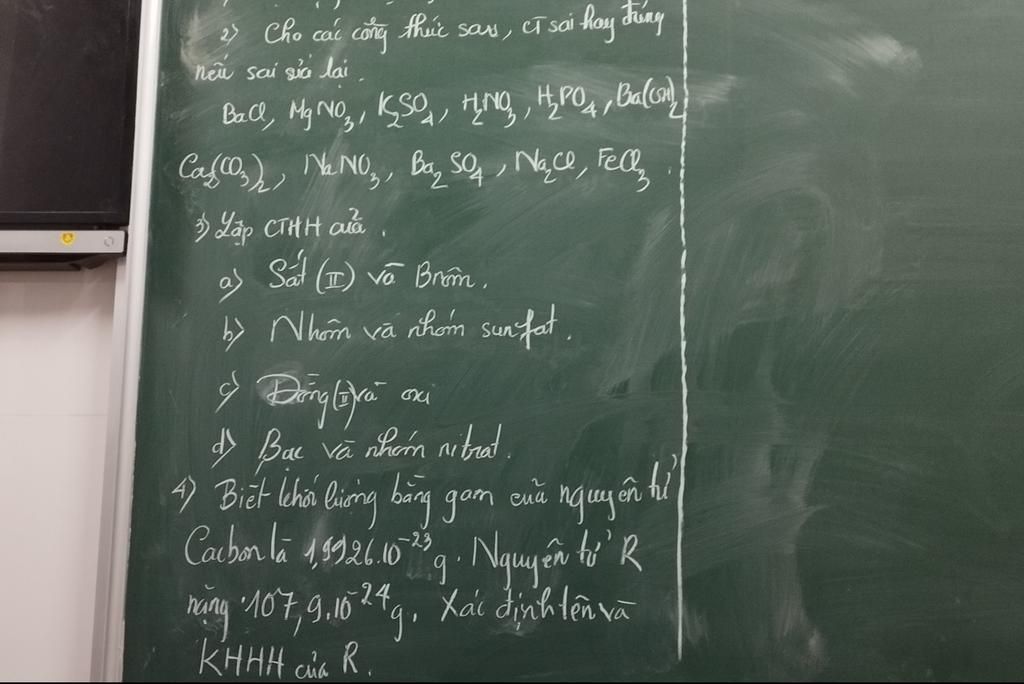 2) Cho các công thức sau, CT sai hay đúng
nếu sai sửa lại.
BaCl, MgNO₃, K₂SO₄, H₂NO₃, H₂PO₄, Ba(OH)₂
Ca₂(CO₃)₂, NaNO₃, Ba₂SO₄, Na₂Cl, FeCl₃.
3) Lập CTHH của.
a) Sắt (II) và Brôm.
b) Nhôm và nhóm sunfat.
c) Đồng(II) và oxi
d) Bạc và nhóm nitrat.
4) Biết khối lượng bằng gam của nguyên tử
Cacbon là 1,9926.10⁻²³ g. Nguyên tử R
nặng 107,9.10⁻²⁴ g. Xác định tên và
KHHH của R.